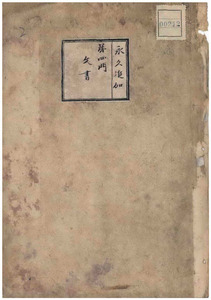 永久追加
第四門
文書
00712